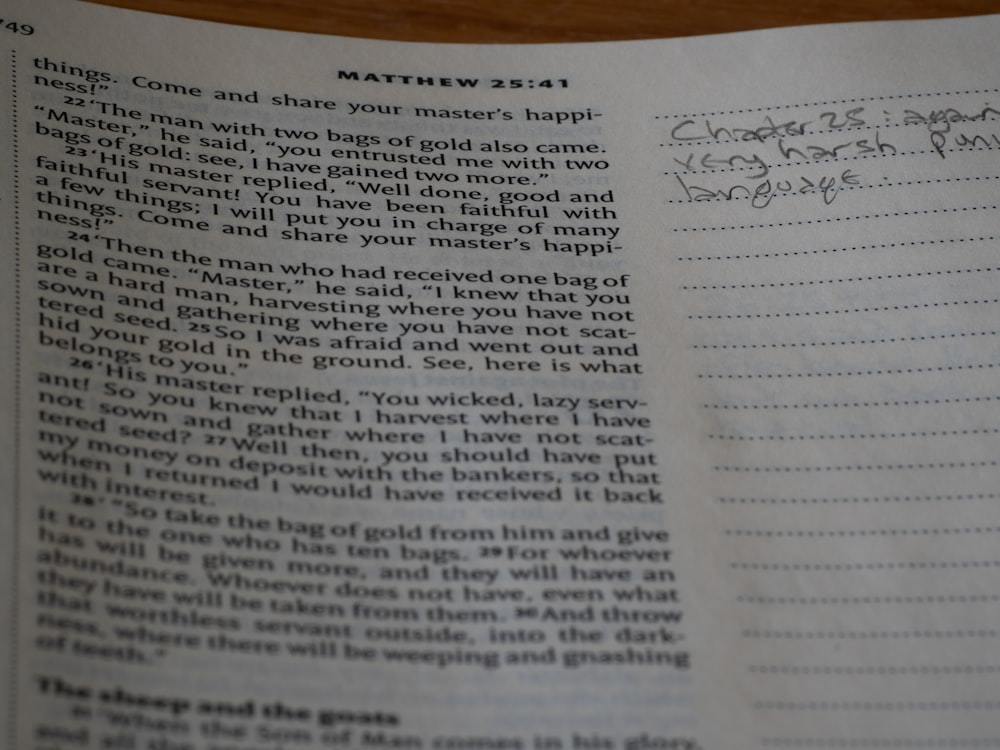 749
MATTHEW 25:41
things. Come and share your master's happi-
ness!"
22 'The man with two bags of gold also came.
"Master," he said, "you entrusted me with two
bags of gold: see, I have gained two more."
23 'His master replied, "Well done, good and
faithful servant! You have been faithful with
a few things; I will put you in charge of many
things. Come and share your master's happi-
ness!"
24 'Then the man who had received one bag of
gold came. "Master," he said, "I knew that you
are a hard man, harvesting where you have not
sown and gathering where you have not scat-
tered seed. 25 So I was afraid and went out and
hid your gold in the ground. See, here is what
belongs to you."
26 'His master replied, "You wicked, lazy serv-
ant! So you knew that I harvest where I have
not sown and gather where I have not scat-
tered seed? 27 Well then, you should have put
my money on deposit with the bankers, so that
when I returned I would have received it back
with interest.
28 ' "So take the bag of gold from him and give
it to the one who has ten bags. 29 For whoever
has will be given more, and they will have an
abundance. Whoever does not have, even what
they have will be taken from them. 30 And throw
that worthless servant outside, into the dark-
ness, where there will be weeping and gnashing
of teeth."
The sheep and the goats
31 'When the Son of Man comes in his glory,
and all the
Chapter 25 : again
very harsh
language.